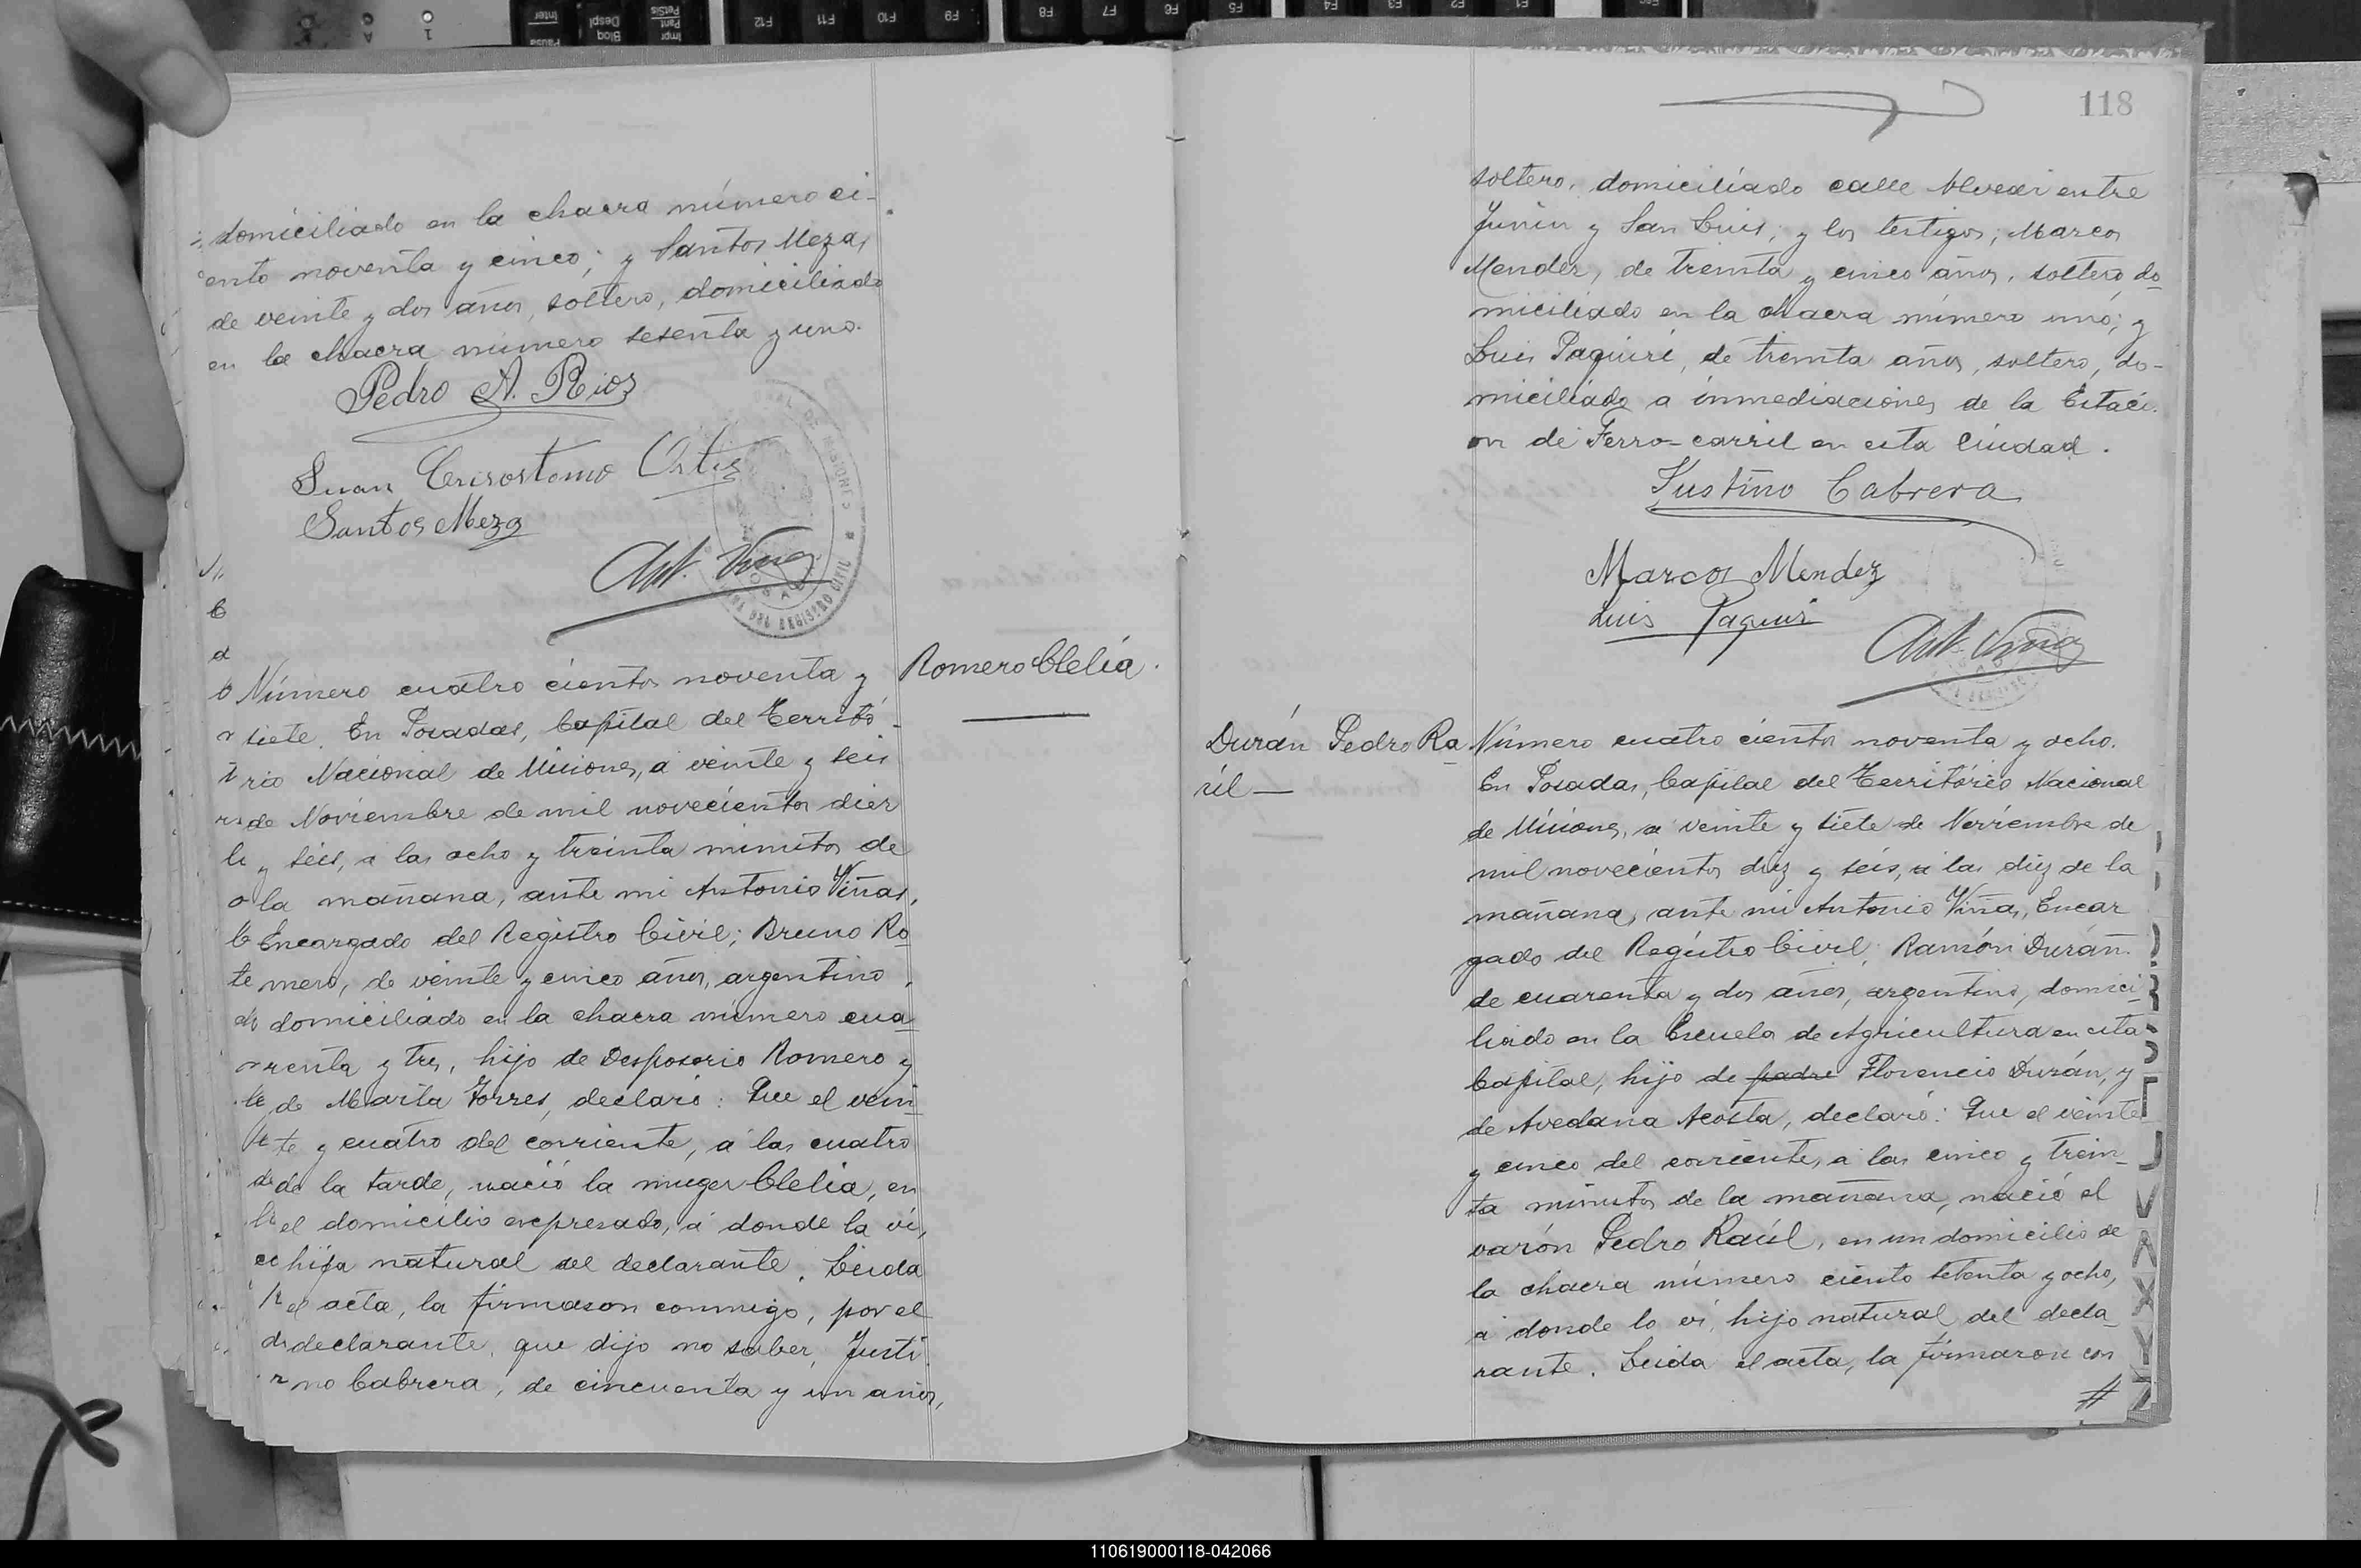 domiciliado en la chacra número ci-
ento noventa y cinco; y Santos Meza,
de veinte y dos años, soltero, domiciliado
en la chacra número sesenta y uno.
Pedro A. Rios
Juan Crisostomo Ortis
Santos Meza
Ant. Viñas
Romero Clelia.
Número cuatro cientos noventa y
siete. En Posadas, Capital del Territó-
rio Nacional de Misiones, a veinte y seis
de Noviembre de mil novecientos diez
y séis, a las ocho y treinta minutos de
la mañana, ante mi Antonio Viñas,
Encargado del Registro Civil; Bruno Ro
mero, de veinte y cinco años, argentino,
domiciliado en la chacra número cua
renta y tres, hijo de Desposorio Romero y
de María Torres, declaró: Que el vein
te y cuatro del corriente, a las cuatro
de la tarde, nació la muger Clelia, en
el domicilio expresado, a donde la ví,
hija natural del declarante. Leida
el acta, la firmason conmigo, por el
declarante, que dijo no saber, Justi
no Cabrera, de cincuenta y un años,
118
soltero, domiciliado calle Alvear entre
Junin y San Luis; y los testigos, Marcos
Mendez, de treinta y cinco años, soltero do
miciliado en la chacra número uno; y
Luis Paquiri, de treinta años, soltero, do-
miciliado a inmediaciones de la Estaci-
on de Ferro-carril en esta Ciudad.
Justino Cabrera
Marcos Mendez
Luis Paquiri
Ant. Viñas
Durán Pedro Ra
úl—
Número cuatro cientos noventa y ocho.
En Posadas, Capital del Território Nacional
de Misiones, a veinte y siete de Noviembre de
mil novecientos diez y séis, a las diez de la
mañana, ante mi Antonio Viñas, Encar
gado del Registro Civil; Ramón Durán
de cuarenta y dos años, argentino, domici
liado en la Escuela de Agricultura en esta
Capital, hijo de padre Florencio Durán, y
de Avedana Acosta, declaró: Que el veinte
y cinco del corriente, a las cinco y trein-
ta minutos de la mañana, nació el
varón Pedro Raúl, en un domicilio de
la chacra número ciento setenta y ocho,
a donde lo ví, hijo natural del decla
rante. Leida el acta, la firmaron con
#
110619000118-042066